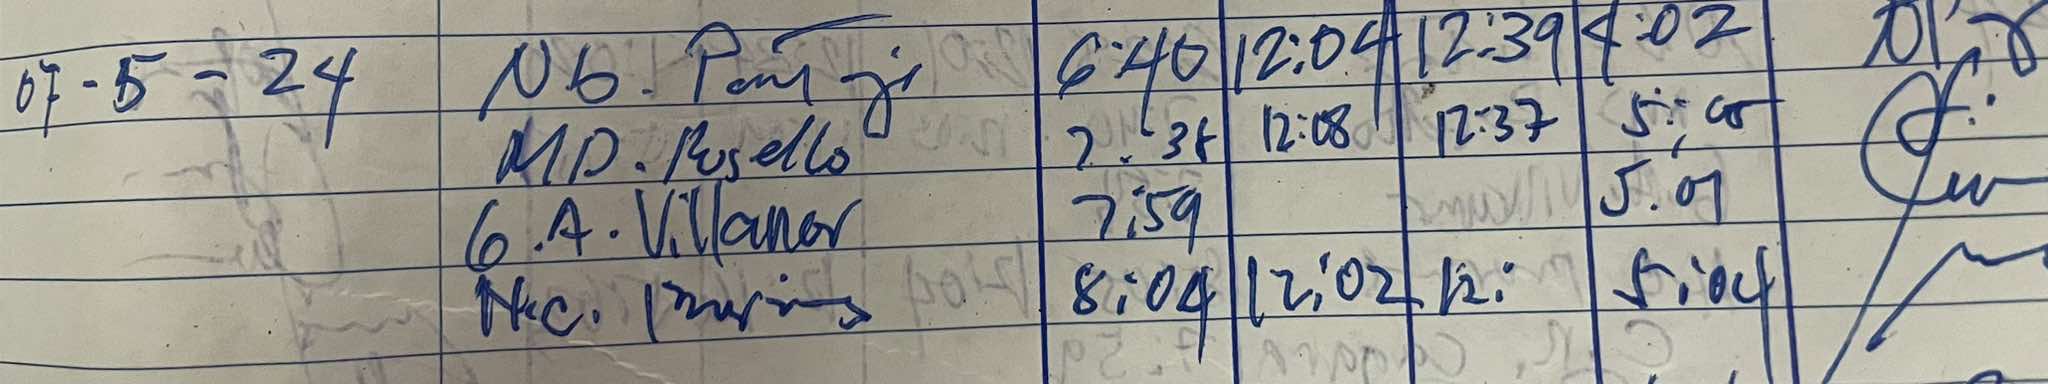 07-5-24 N b. 6:40 12:04 12:39 4:02
M D. Rosello 7:38 12:08 12:37 5:05
G.A. Villamor 7:59 5:01
N.C. 8:04 12:02 12: 5:04